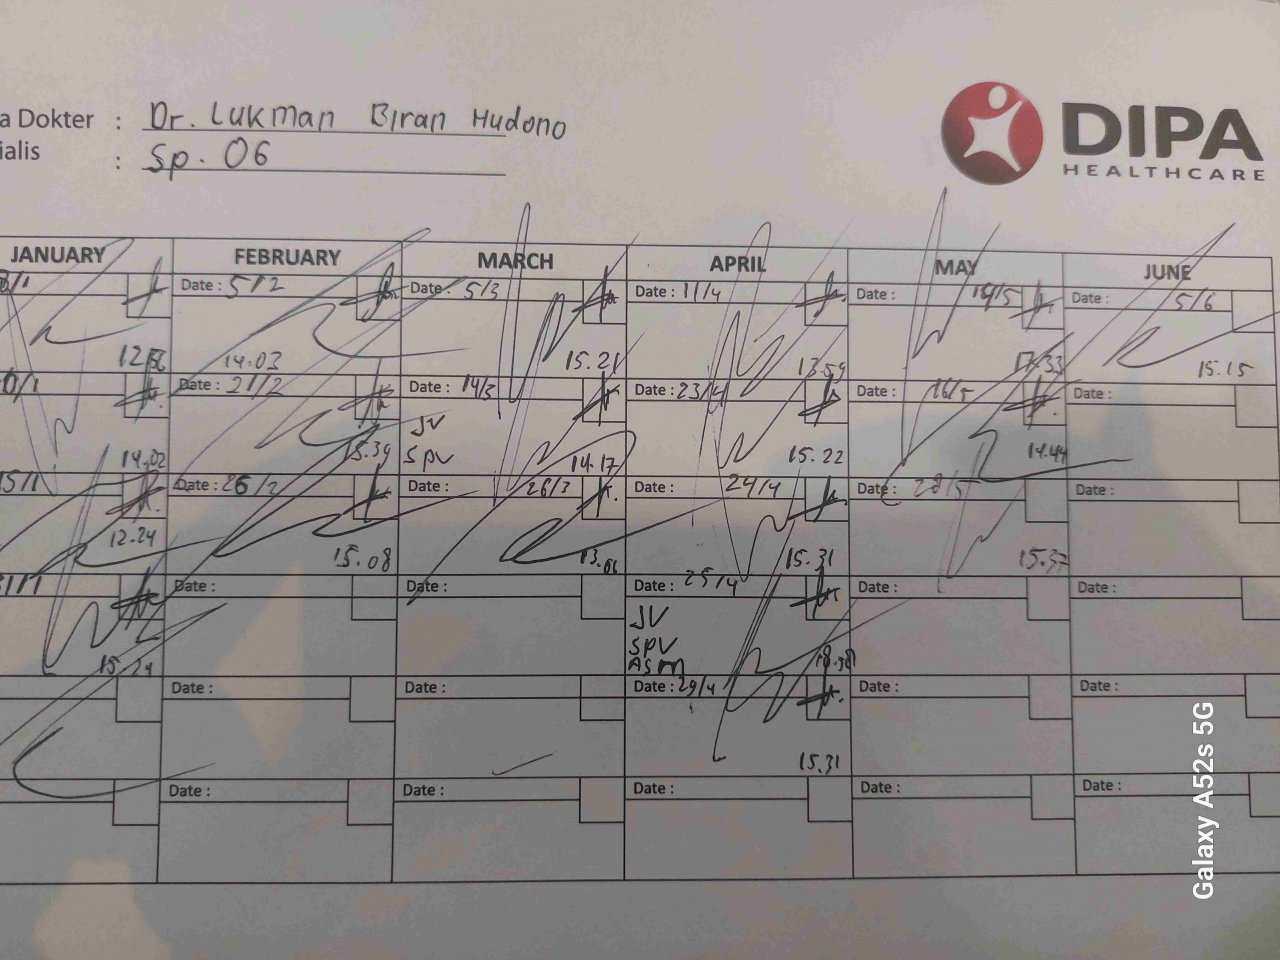 a Dokter : Dr. Lukman Biran Hudono
ialis : Sp. OG
DIPA
HEALTHCARE
JANUARY FEBRUARY MARCH APRIL MAY JUNE
Date : 5/2 Date : 5/3 Date : 11/4 Date : Date : 5/6
14.03 15.21 13.59 17.33 15.15
Date : 21/2 Date : 14/3 Date : 23/4 Date : 16/5 Date :
JV
14.02 15.39 SPV 14.17 15.22 14.44
15/1 Date : 26/2 Date : 26/3 Date : 24/4 Date : 28/5 Date :
12.24 15.08 15.31 15.37
Date : Date : Date : 25/4 Date : Date :
JV
SPV
15.24 ASM
Date : Date : Date : 29/4 Date : Date :
15.31
Date : Date : Date : Date : Date :
Galaxy A52s 5G